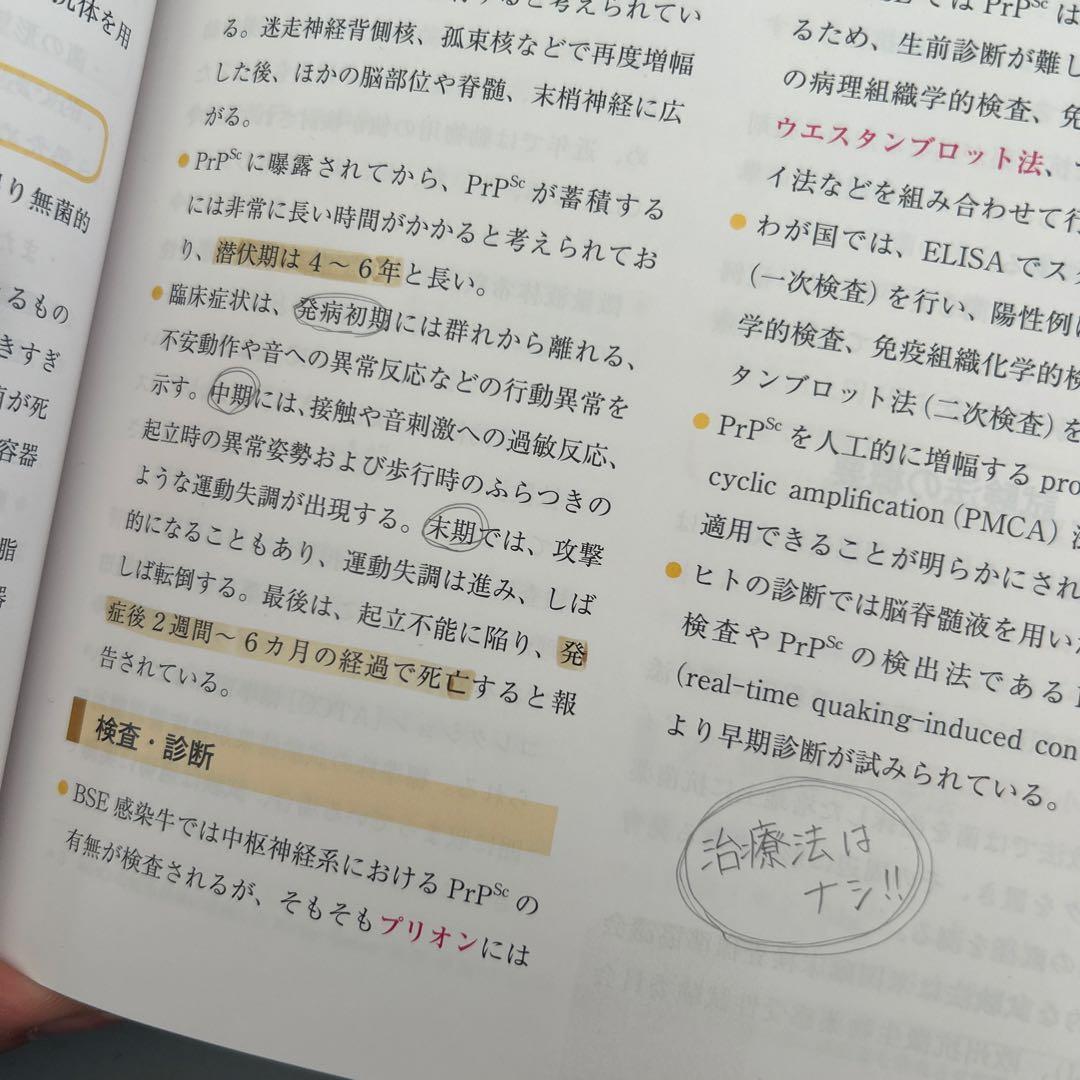 抗体を用
り無菌的
るもの
きすぎ
菌が死
容器
脂
器
ると考えられてい
る。迷走神経背側核、孤束核などで再度増幅
した後、ほかの脳部位や脊髄、末梢神経に広
がる。
● PrPScに曝露されてから、PrPScが蓄積する
には非常に長い時間がかかると考えられてお
り、潜伏期は4〜6年と長い。
● 臨床症状は、発病初期には群れから離れる、
不安動作や音への異常反応などの行動異常を
示す。中期には、接触や音刺激への過敏反応、
起立時の異常姿勢および歩行時のふらつきの
ような運動失調が出現する。末期では、攻撃
的になることもあり、運動失調は進み、しば
しば転倒する。最後は、起立不能に陥り、発
症後2週間〜6カ月の経過で死亡すると報
告されている。
検査・診断
● BSE感染牛では中枢神経系におけるPrPScの
有無が検査されるが、そもそもプリオンには
ではPrPScは
るため、生前診断が難し
の病理組織学的検査、免
ウエスタンブロット法、
イ法などを組み合わせて行
● わが国では、ELISAでス
(一次検査)を行い、陽性例に
学的検査、免疫組織化学的検
タンブロット法(二次検査)を
● PrPScを人工的に増幅するpro
cyclic amplification (PMCA)
適用できることが明らかにされ
● ヒトの診断では脳脊髄液を用い
検査やPrPScの検出法である
(real-time quaking-induced con
より早期診断が試みられている。
治療法は
ナシ!!